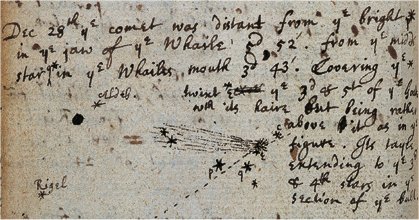 Dec 28th ye comet was distant from ye bright
in ye jaw of ye Whaile 5d, 52'. from ye midd
star in ye Whailes mouth 3d 43'. Covering ye
Aldeb. twixt ye 3d & 5t of ye
wth its haire but being rathe
above it as in
figure. Its tayle
extending to ye
Rigel p q & 4th stars in
section of ye